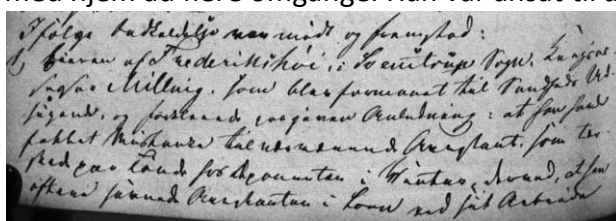 med hjem ad flere omgange. Han var ansat til
Ifølge Indkaldelse var mødt og fremstod:
1, Eieren af Frederikshøi, i Svenstrup Sogn,
Milling, som blev formanet til Sandheds Ud-
sigende, og forklarede paa given Anledning: at han havde
fattet Mistanke til nærværende Arrestant, som ter-
sked paa hos Deponenten i Winter, derved, at han
oftere savnede Arrestanten i Loen ved sit Arbeide